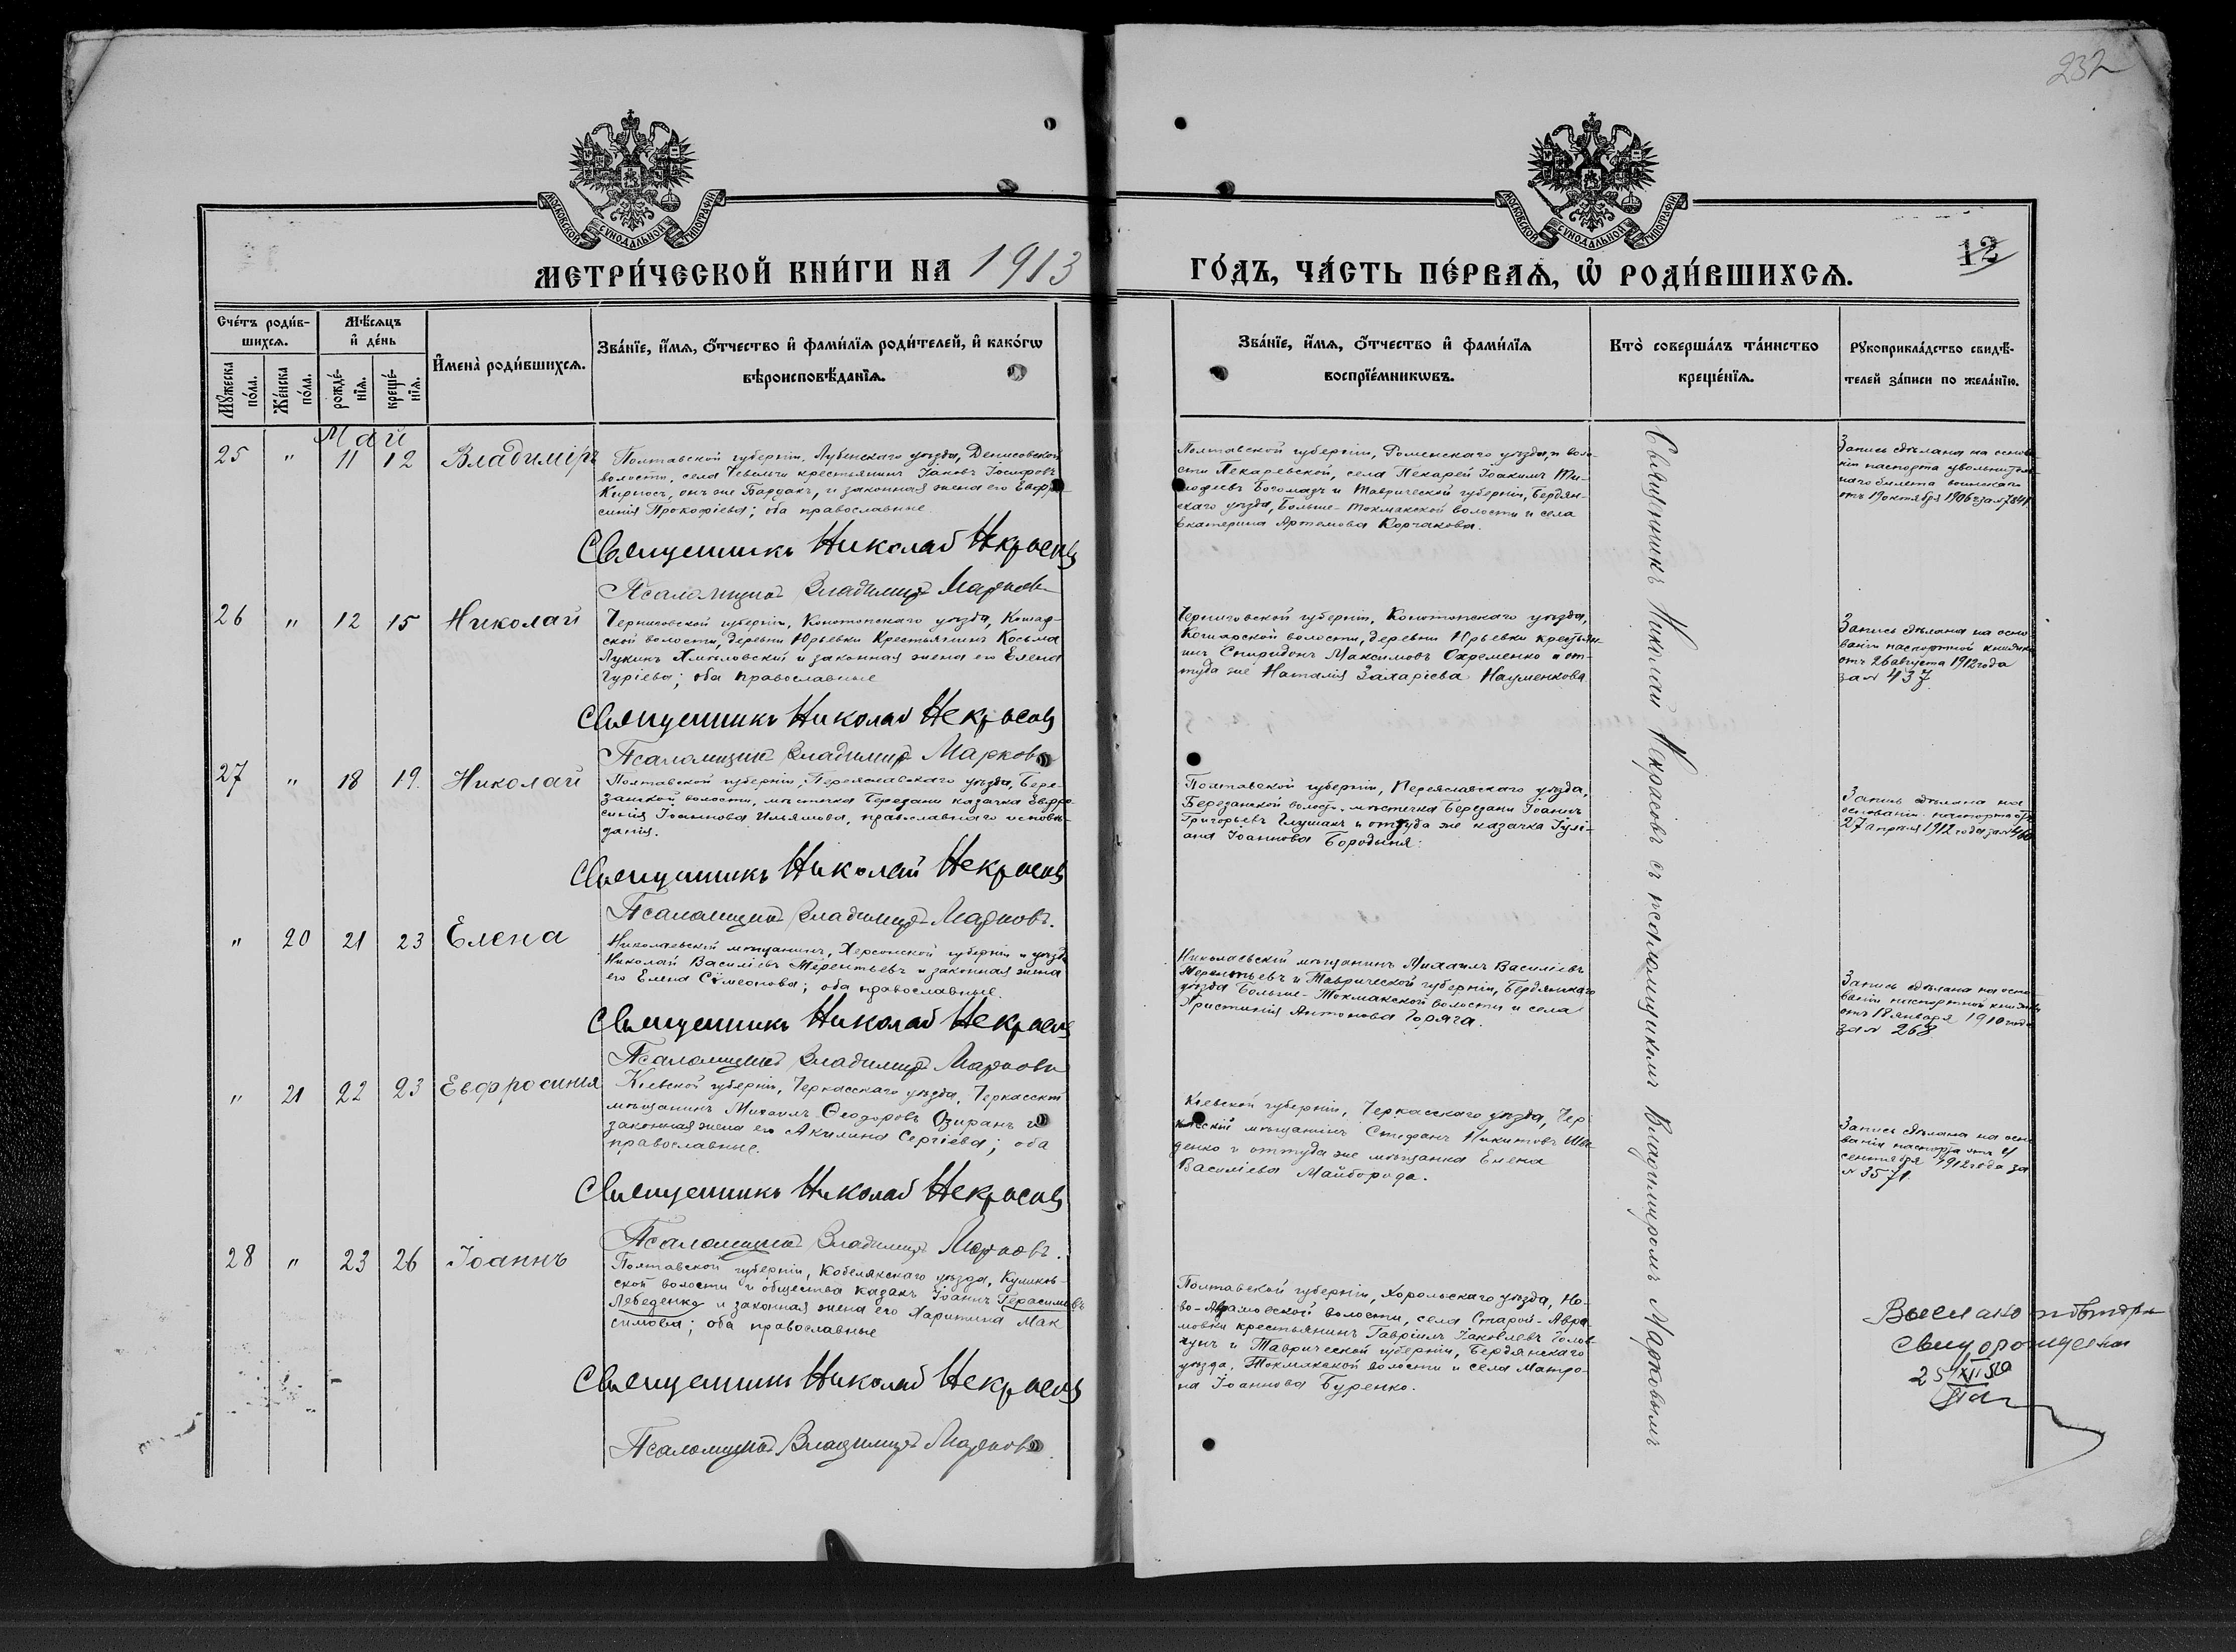 232
МОСКОВСКОЙ СѴНОДАЛЬНОЙ ТИПОГРАФІИ
МОСКОВСКОЙ СѴНОДАЛЬНОЙ ТИПОГРАФІИ
12
МЕТРИ́ЧЕСКОЙ КНИ́ГИ НА 1913
ГО́ДЪ, ЧА́СТЬ ПЕ́РВАѦ, Ѡ҆ РОДИ́ВШИХСѦ.
Сче́тъ роди́в-
шихсѧ.
Мꙋжеска по́ла.
Же́нска по́ла.
Мѣ́сѧцъ
и҆ де́нь
рожде́-
нїѧ.
креще́-
нїѧ.
И҆мена̀ роди́вшихсѧ.
Зва́нїе, и҆́мѧ, ѻ҆́тчество и҆ фами́лїѧ роди́телей, и҆ како́гѡ
вѣроисповѣ́данїѧ.
Зва́нїе, и҆́мѧ, ѻ҆́тчество и҆ фами́лїѧ
воспрїе́мникѡвъ.
Кто̀ соверша́лъ та́инство
креще́нїѧ.
Рꙋкоприкла́дство свидѣ́-
телей за́писи по жела́нїю.
Май
25 " 11 12 Владиміръ
Полтавской губерніи, Лубенскаго уѣзда, Денисовской
волости, села крестьянинъ Іаковъ Іосифовъ
онъ же и законная жена его Евфро-
синія Прокофіева; оба православные
Священникъ Николай Некрасовъ
Псаломщикъ Владимиръ Марковъ
Полтавской губерніи, Роменскаго уѣзда, воло-
сти Пекаревской, села Пекарей Іоакимъ Ти-
моѳеевъ Богомазъ и Таврической губерніи, Бердян-
скаго уѣзда, Больше-Токмакской волости и села
Екатерина Артемова Корчакова.
Запись сдѣлана на основа-
ніи паспорта увольнитель-
наго билета воинскаго
отъ 19 октября 1906 г за №
26 " 12 15 Николай
Черниговской губерніи, Конотопскаго уѣзда, Кошар-
ской волости, деревни Юрьевки крестьянинъ Косьма
Лукинъ Хмѣловскій и законная жена его Елена
Гуріева; оба православные
Священникъ Николай Некрасовъ
Псаломщикъ Владимиръ Марковъ
Черниговской губерніи, Конотопскаго уѣзда,
Кошарской волости, деревни Юрьевки крестьян-
инъ Спиридонъ Максимовъ Охременко и от-
туда же Наталія Захаріева Науменкова
Запись сдѣлана на осно-
ваніи паспортной книжки
отъ 26 августа 1912 года
за № 437.
27 " 18 19. Николай
Полтавской губерніи, Переяславскаго уѣзда, Бере-
занской волости, мѣстечка Березани казачка Евфро-
синія Іоаннова православнаго исповѣ-
данія.
Священникъ Николай Некрасовъ
Псаломщикъ Владимиръ Марковъ.
Полтавской губерніи, Переяславскаго уѣзда,
Березанской волост. мѣстечка Березани Іоаннъ
Григорьевъ Глушакъ и оттуда же казачка Іулі-
ана Іоаннова Бородыня.
Запись сдѣлана на
основаніи паспорта отъ
27 апрѣля 1912 года за №
" 20 21 23 Елена
Николаевскій мѣщанинъ, Херсонской губерніи и уѣзда
Николай Василіевъ Терентьевъ и законная жена
его Елена Сѵмеонова; оба православные.
Священникъ Николай Некрасовъ
Псаломщикъ Владимиръ Марковъ
Николаевскій мѣщанинъ Михаилъ Василіевъ
Терентьевъ и Таврической губерніи, Бердянскаго
уѣзда Больше-Токмакской волости и села
Христинія Антонова Горяга.
Запись сдѣлана на осно-
ваніи паспортной книжки
отъ 18 января 1910 года
за № 268
" 21 22 23 Евфросинія
Кіевской губерніи, Черкасскаго уѣзда, Черкасскій
мѣщанинъ Михаилъ Ѳеодоровъ Озиранъ и
законная жена его Акилина Сергіева; оба
православные.
Священникъ Николай Некрасовъ
Псаломщикъ Владимиръ Марковъ.
Кіевской губерніи, Черкасскаго уѣзда, Чер-
касскій мѣщанинъ Стефанъ Никитовъ
денко и оттуда же мѣщанка Елена
Василіева Майборода.
Запись сдѣлана на осно-
ваніи паспорта отъ 4
сентября 1912 года за
№ 3571.
28 " 23 26 Іоаннъ
Полтавской губерніи, Кобелякскаго уѣзда, Куликов-
ской волости и общества казакъ Іоаннъ Герасимовъ
Лебеденко и законная жена его Харитина Мак-
симова; оба православные
Священникъ Николай Некрасовъ
Псаломщикъ Владимиръ Марковъ.
Полтавской губерніи, Хорольскаго уѣзда, Но-
во-Аврамовской волости, села Старой-Авра-
мовки крестьянинъ Гавріилъ Іаковлевъ Голов-
Таврической губерніи, Бердянскаго
уѣзда, Токмакской волости и села Матро-
на Іоаннова Буренко.
Выслано повторн
свид о рождении
25/XII 50
Священникъ Николай Некрасовъ съ псаломщикомъ Владимиромъ Марковымъ